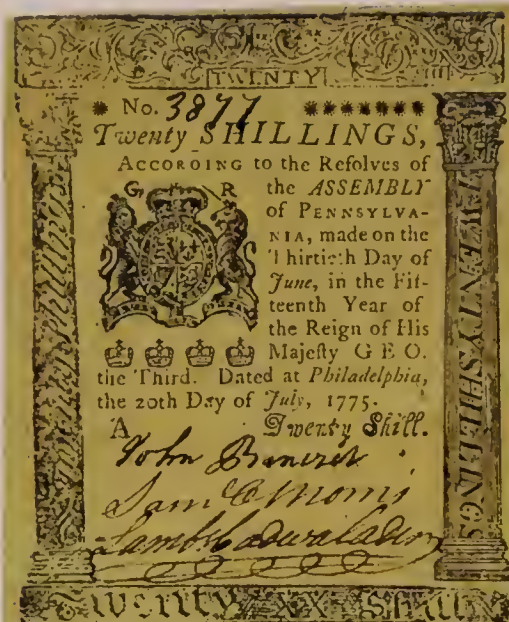 TWENTY
No. 3877
Twenty SHILLINGS,
ACCORDING to the Reſolves of
G R the ASSEMBLY
of PENNSYLVA-
NIA, made on the
Thirtieth Day of
June, in the Fif-
teenth Year of
the Reign of His
Majeſty GEO.
the Third. Dated at Philadelphia,
the 20th Day of July, 1775.
A Twenty Shill.
John
Sam C Morris
Lamb Cadwalader
Twenty Shillings
TWENTY SHILLINGS
Twenty XX Shill